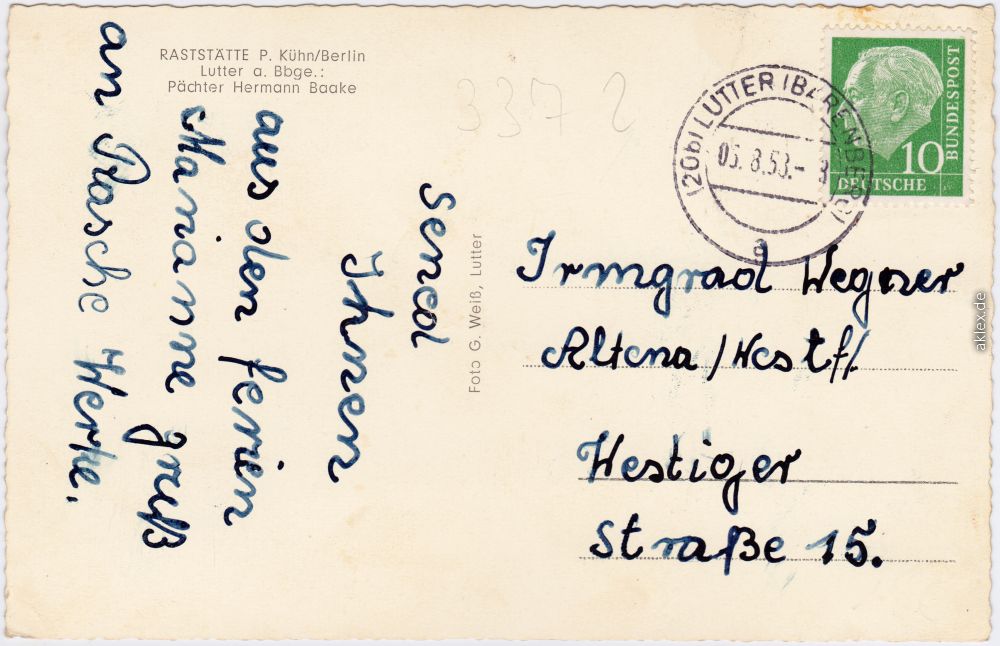 RASTSTÄTTE P. Kühn/Berlin
Lutter a. Bbge.:
Pächter Hermann Baake
3372
(20b) LUTTER (BARENBERG)
05.8.53.-
a
10
DEUTSCHE
BUNDESPOST
Foto G. Weiß, Lutter
Irmgrad Wegner
Altena/Westf/.
Westiger
Straße 15.
Ihnen
aus den ferien
Marianne gruß
an Rasche Werke.
aklex.de